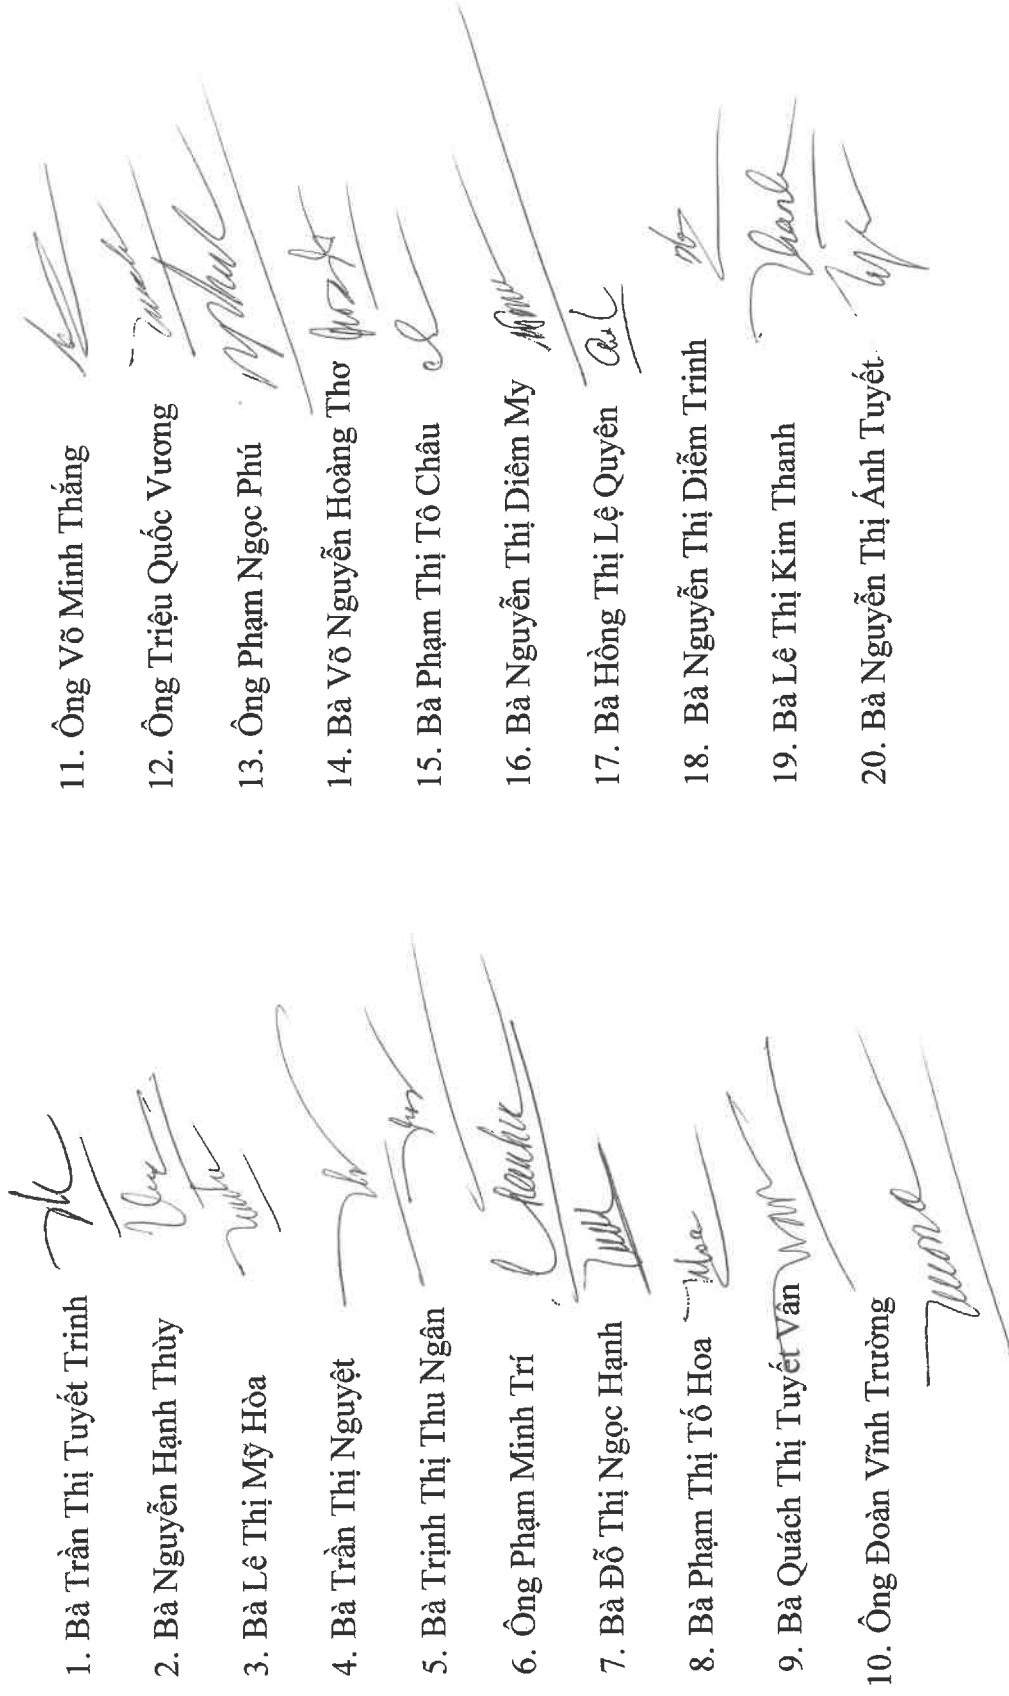 1. Bà Trần Thị Tuyết Trinh
2. Bà Nguyễn Hạnh Thùy
3. Bà Lê Thị Mỹ Hòa
4. Bà Trần Thị Nguyệt
5. Bà Trịnh Thị Thu Ngân
6. Ông Phạm Minh Trí
7. Bà Đỗ Thị Ngọc Hạnh
8. Bà Phạm Thị Tố Hoa
9. Bà Quách Thị Tuyết Vân
10. Ông Đoàn Vĩnh Trường
11. Ông Võ Minh Thắng
12. Ông Triệu Quốc Vương
13. Ông Phạm Ngọc Phú
14. Bà Võ Nguyễn Hoàng Thơ
15. Bà Phạm Thị Tô Châu
16. Bà Nguyễn Thị Diêm My
17. Bà Hồng Thị Lệ Quyên
18. Bà Nguyễn Thị Diễm Trinh
19. Bà Lê Thị Kim Thanh
20. Bà Nguyễn Thị Ánh Tuyết